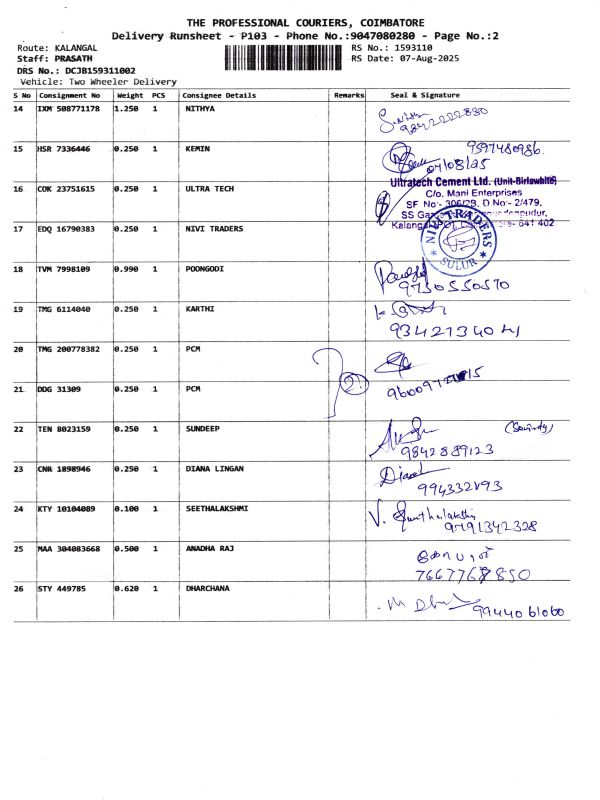 THE PROFESSIONAL COURIERS, COIMBATORE
Delivery Runsheet - P103 - Phone No.:9047080280 - Page No.:2
Route: KALANGAL RS No.: 1593110
Staff: PRASATH RS Date: 07-Aug-2025
DRS No.: DCJB159311002
Vehicle: Two Wheeler Delivery
S No Consignment No Weight PCS Consignee Details Remarks Seal & Signature
14 IXM 508771178 1.250 1 NITHYA
9842222880
15 HSR 7336446 0.250 1 KEMIN 9597480986
07/08/25
16 COK 23751615 0.250 1 ULTRA TECH
Ultratech Cement Ltd. (Unit-Birlawhite)
C/o. Mani Enterprises
SF No:- 306/2B, D No:- 2/479,
641 402
17 EDQ 16790383 0.250 1 NIVI TRADERS
NIVI TRADERS
SULUR
18 TVM 7998109 0.990 1 POONGODI
9750550570
19 TMG 6114040 0.250 1 KARTHI
20 TMG 200778382 0.250 1 PCM
21 DDG 31309 0.250 1 PCM
2
22 TEN 8023159 0.250 1 SUNDEEP
9842889123
23 CNR 1898946 0.250 1 DIANA LINGAN
24 KTY 10104089 0.100 1 SEETHALAKSHMI
V. Seethalakshmi
9791342328
25 MAA 304083668 0.500 1 ANADHA RAJ
26 STY 449785 0.620 1 DHARCHANA
9944061060